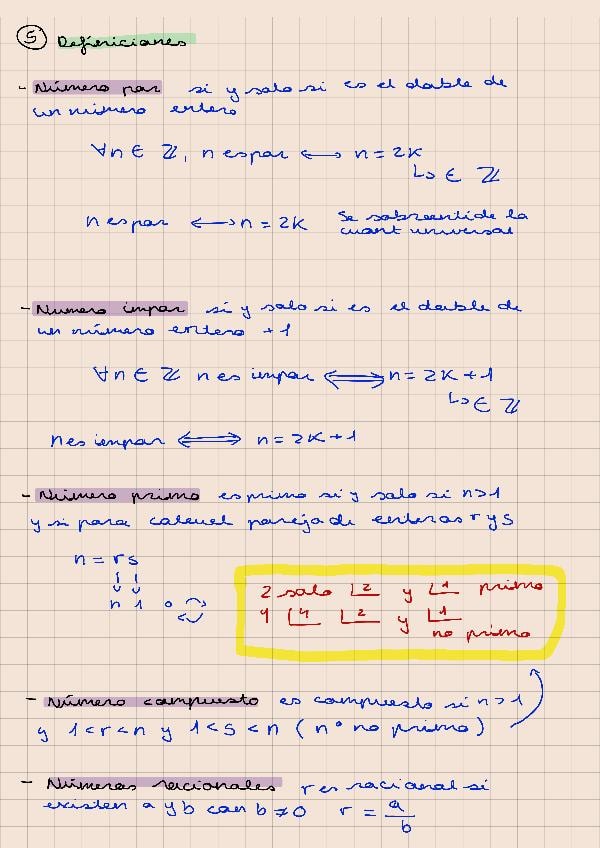 5 Definiciones
- Número par si y solo si es el doble de
un número entero
∀n ∈ ℤ, n es par ↔ n = 2k
↳ ∈ ℤ
n es par ↔ n = 2k Se sobreentide la
cuant universal
- Numero impar si y solo si es el doble de
un número entero +1
∀n ∈ ℤ n es impar ⟺ n = 2k + 1
↳ ∈ ℤ
n es impar ⟺ n = 2k + 1
- Número primo es primo si y solo si n > 1
y si para pareja de enteros r y s
n = r s
↓ ↓
n 1 o
2 solo 2 y 1 primo
4 4 2 y 1
no primo
- Número compuesto es compuesto si n > 1
y 1 < r < n y 1 < s < n (nº no primo)
- Números racionales r es racional si
existen a y b con b ≠ 0 r = a/b